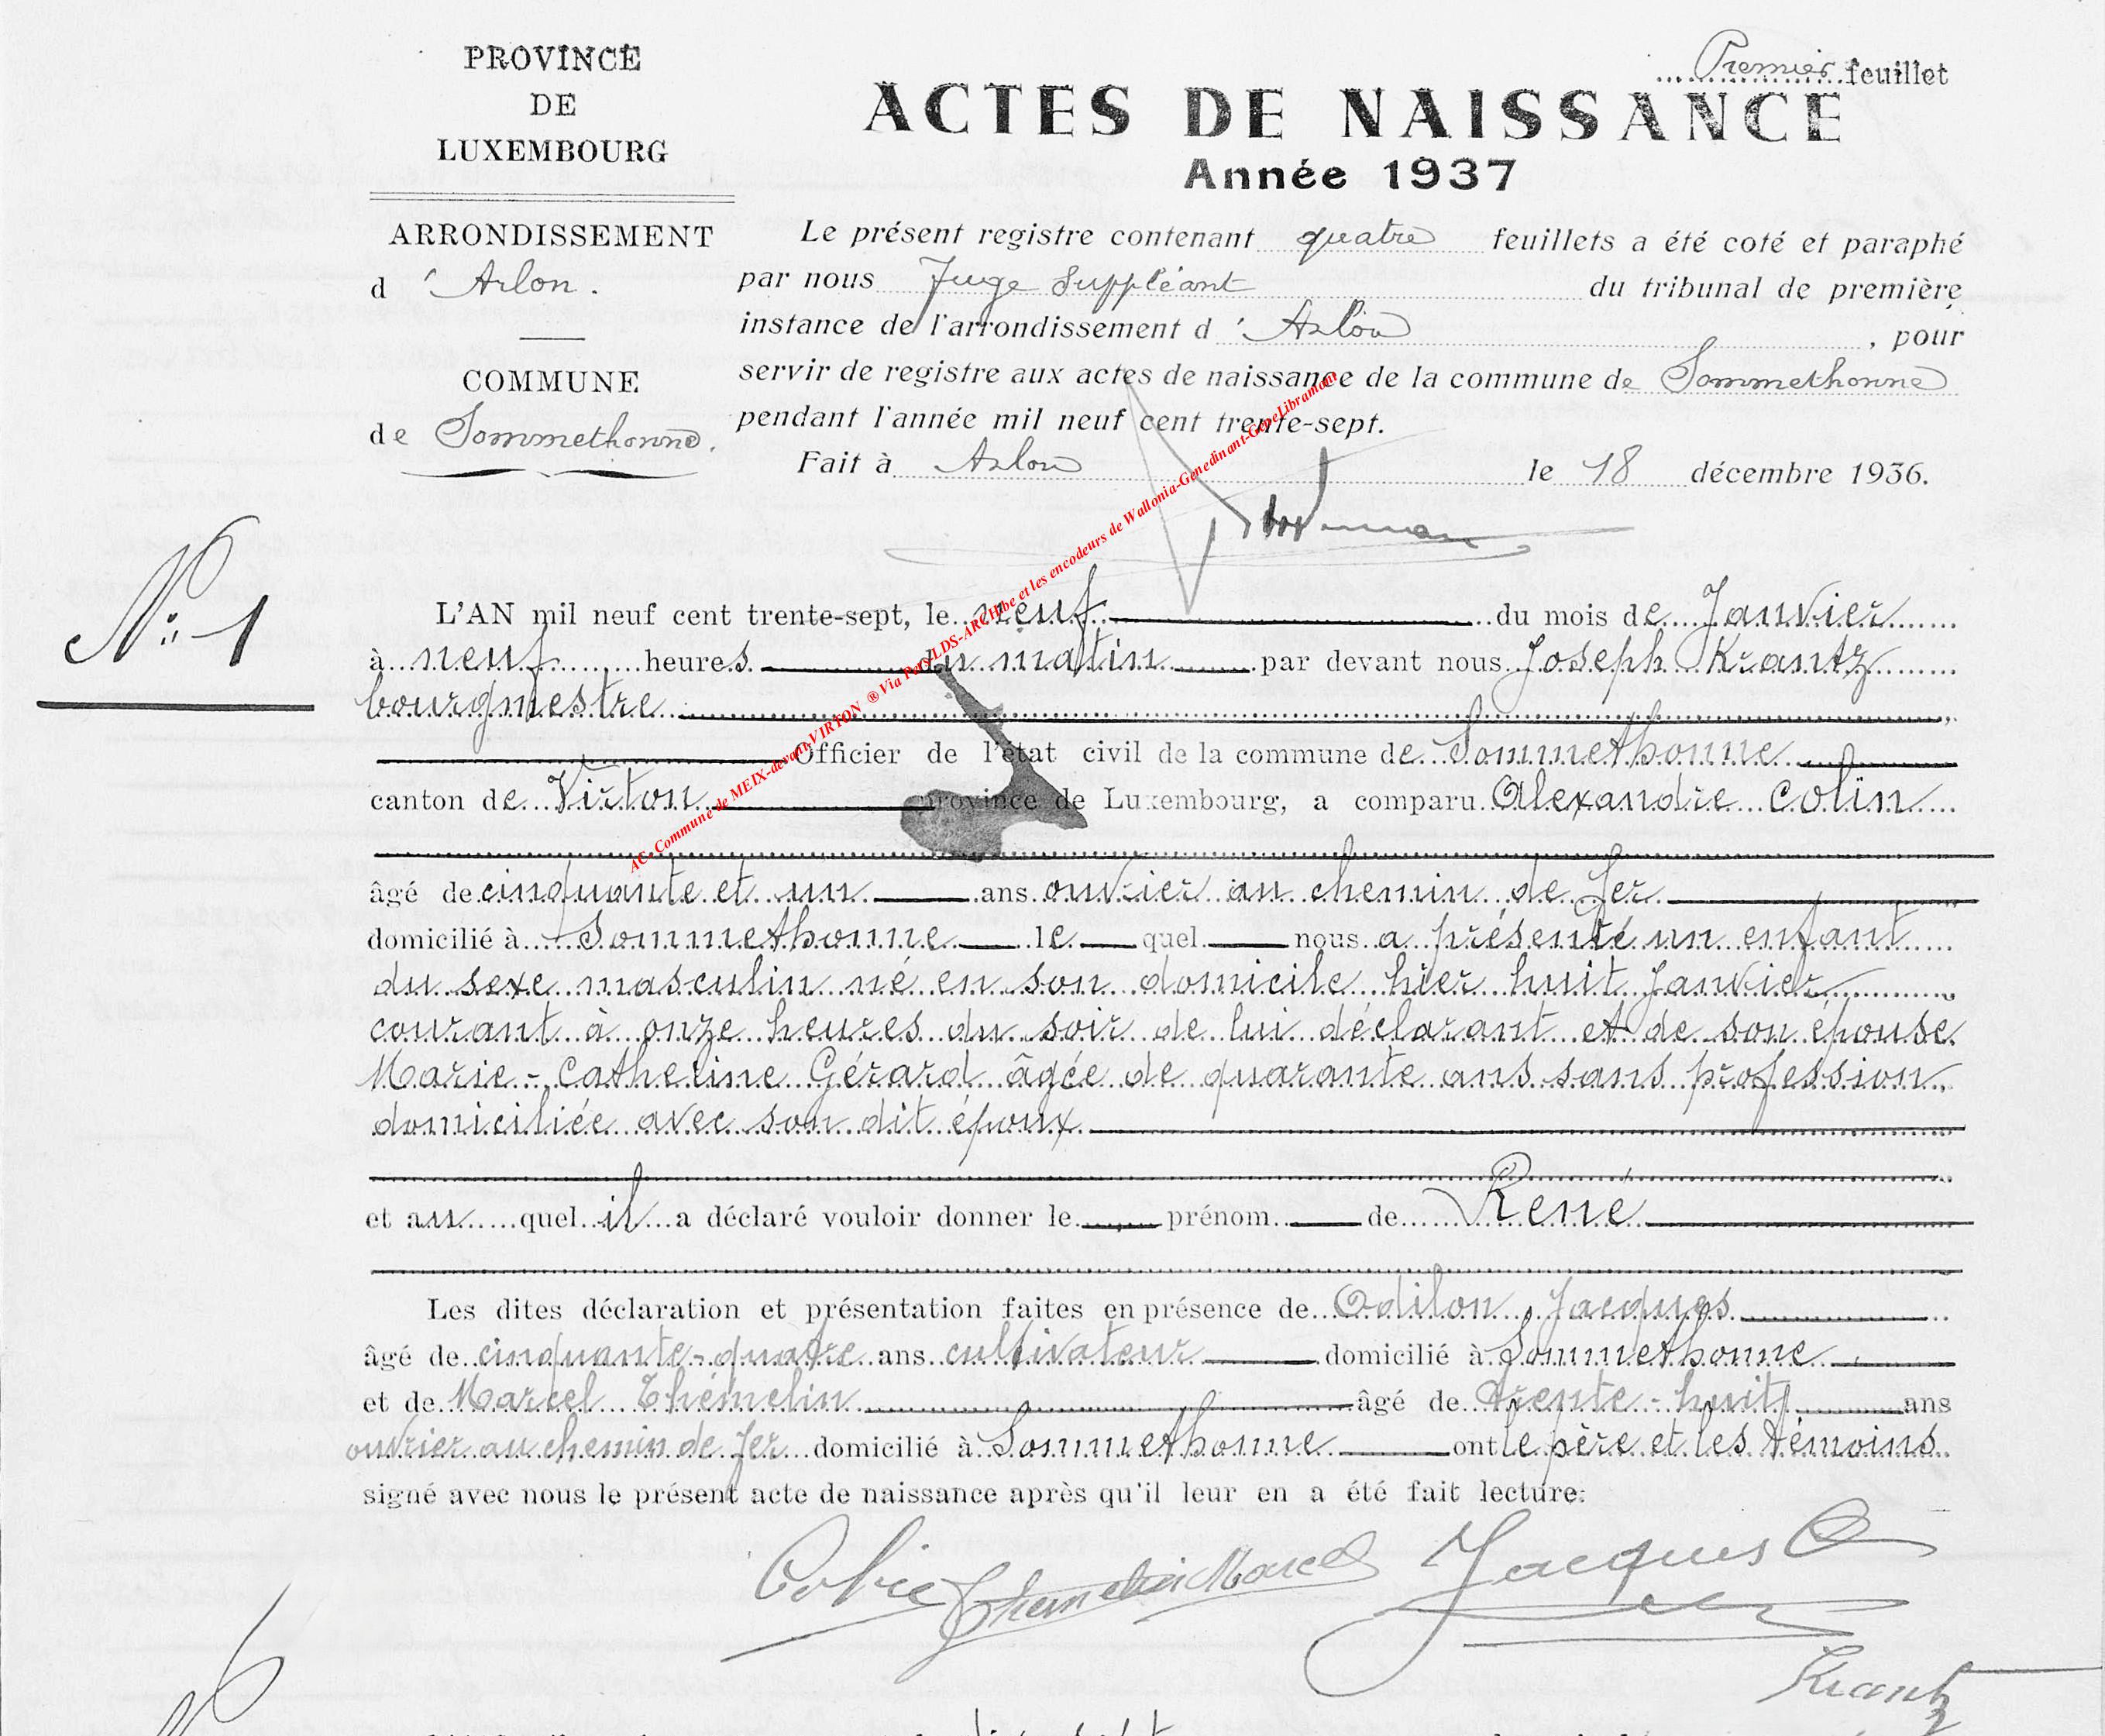 Premier feuillet
PROVINCE
DE
LUXEMBOURG
ACTES DE NAISSANCE
Année 1937
ARRONDISSEMENT
d'Arlon.
COMMUNE
de Sommethonne.
Le présent registre contenant quatre feuillets a été coté et paraphé
par nous Juge Suppléant du tribunal de première
instance de l'arrondissement d'Arlon, pour
servir de registre aux actes de naissance de la commune de Sommethonne
pendant l'année mil neuf cent trente-sept.
Fait à Arlon le 18 décembre 1936.
AC. Commune de MEIX-devant-VIRTON ® Via Pers/LDS-ARCHbe et les encodeurs de Wallonia-Genedinant-GeneLibramont
N° 1
L'AN mil neuf cent trente-sept, le neuf du mois de Janvier
à neuf heures du matin par devant nous Joseph Krantz
bourgmestre
Officier de l'état civil de la commune de Sommethonne
canton de Virton province de Luxembourg, a comparu Alexandre Colin
âgé de cinquante et un ans ouvrier au chemin de fer
domicilié à Sommethonne lequel nous a présenté un enfant
du sexe masculin né en son domicile hier huit Janvier
courant à onze heures du soir de lui déclarant et de son épouse
Marie-Catherine Gérard âgée de quarante ans sans profession,
domiciliée avec son dit époux
et au quel il a déclaré vouloir donner le prénom de René
Les dites déclaration et présentation faites en présence de Odilon Jacques
âgé de cinquante-quatre ans cultivateur domicilié à Sommethonne
et de Marcel Thémelin âgé de trente-huit ans
ouvrier au chemin de fer domicilié à Sommethonne ont le père et les témoins
signé avec nous le présent acte de naissance après qu'il leur en a été fait lecture:
Colin Themelin Marcel Jacques O
Krantz